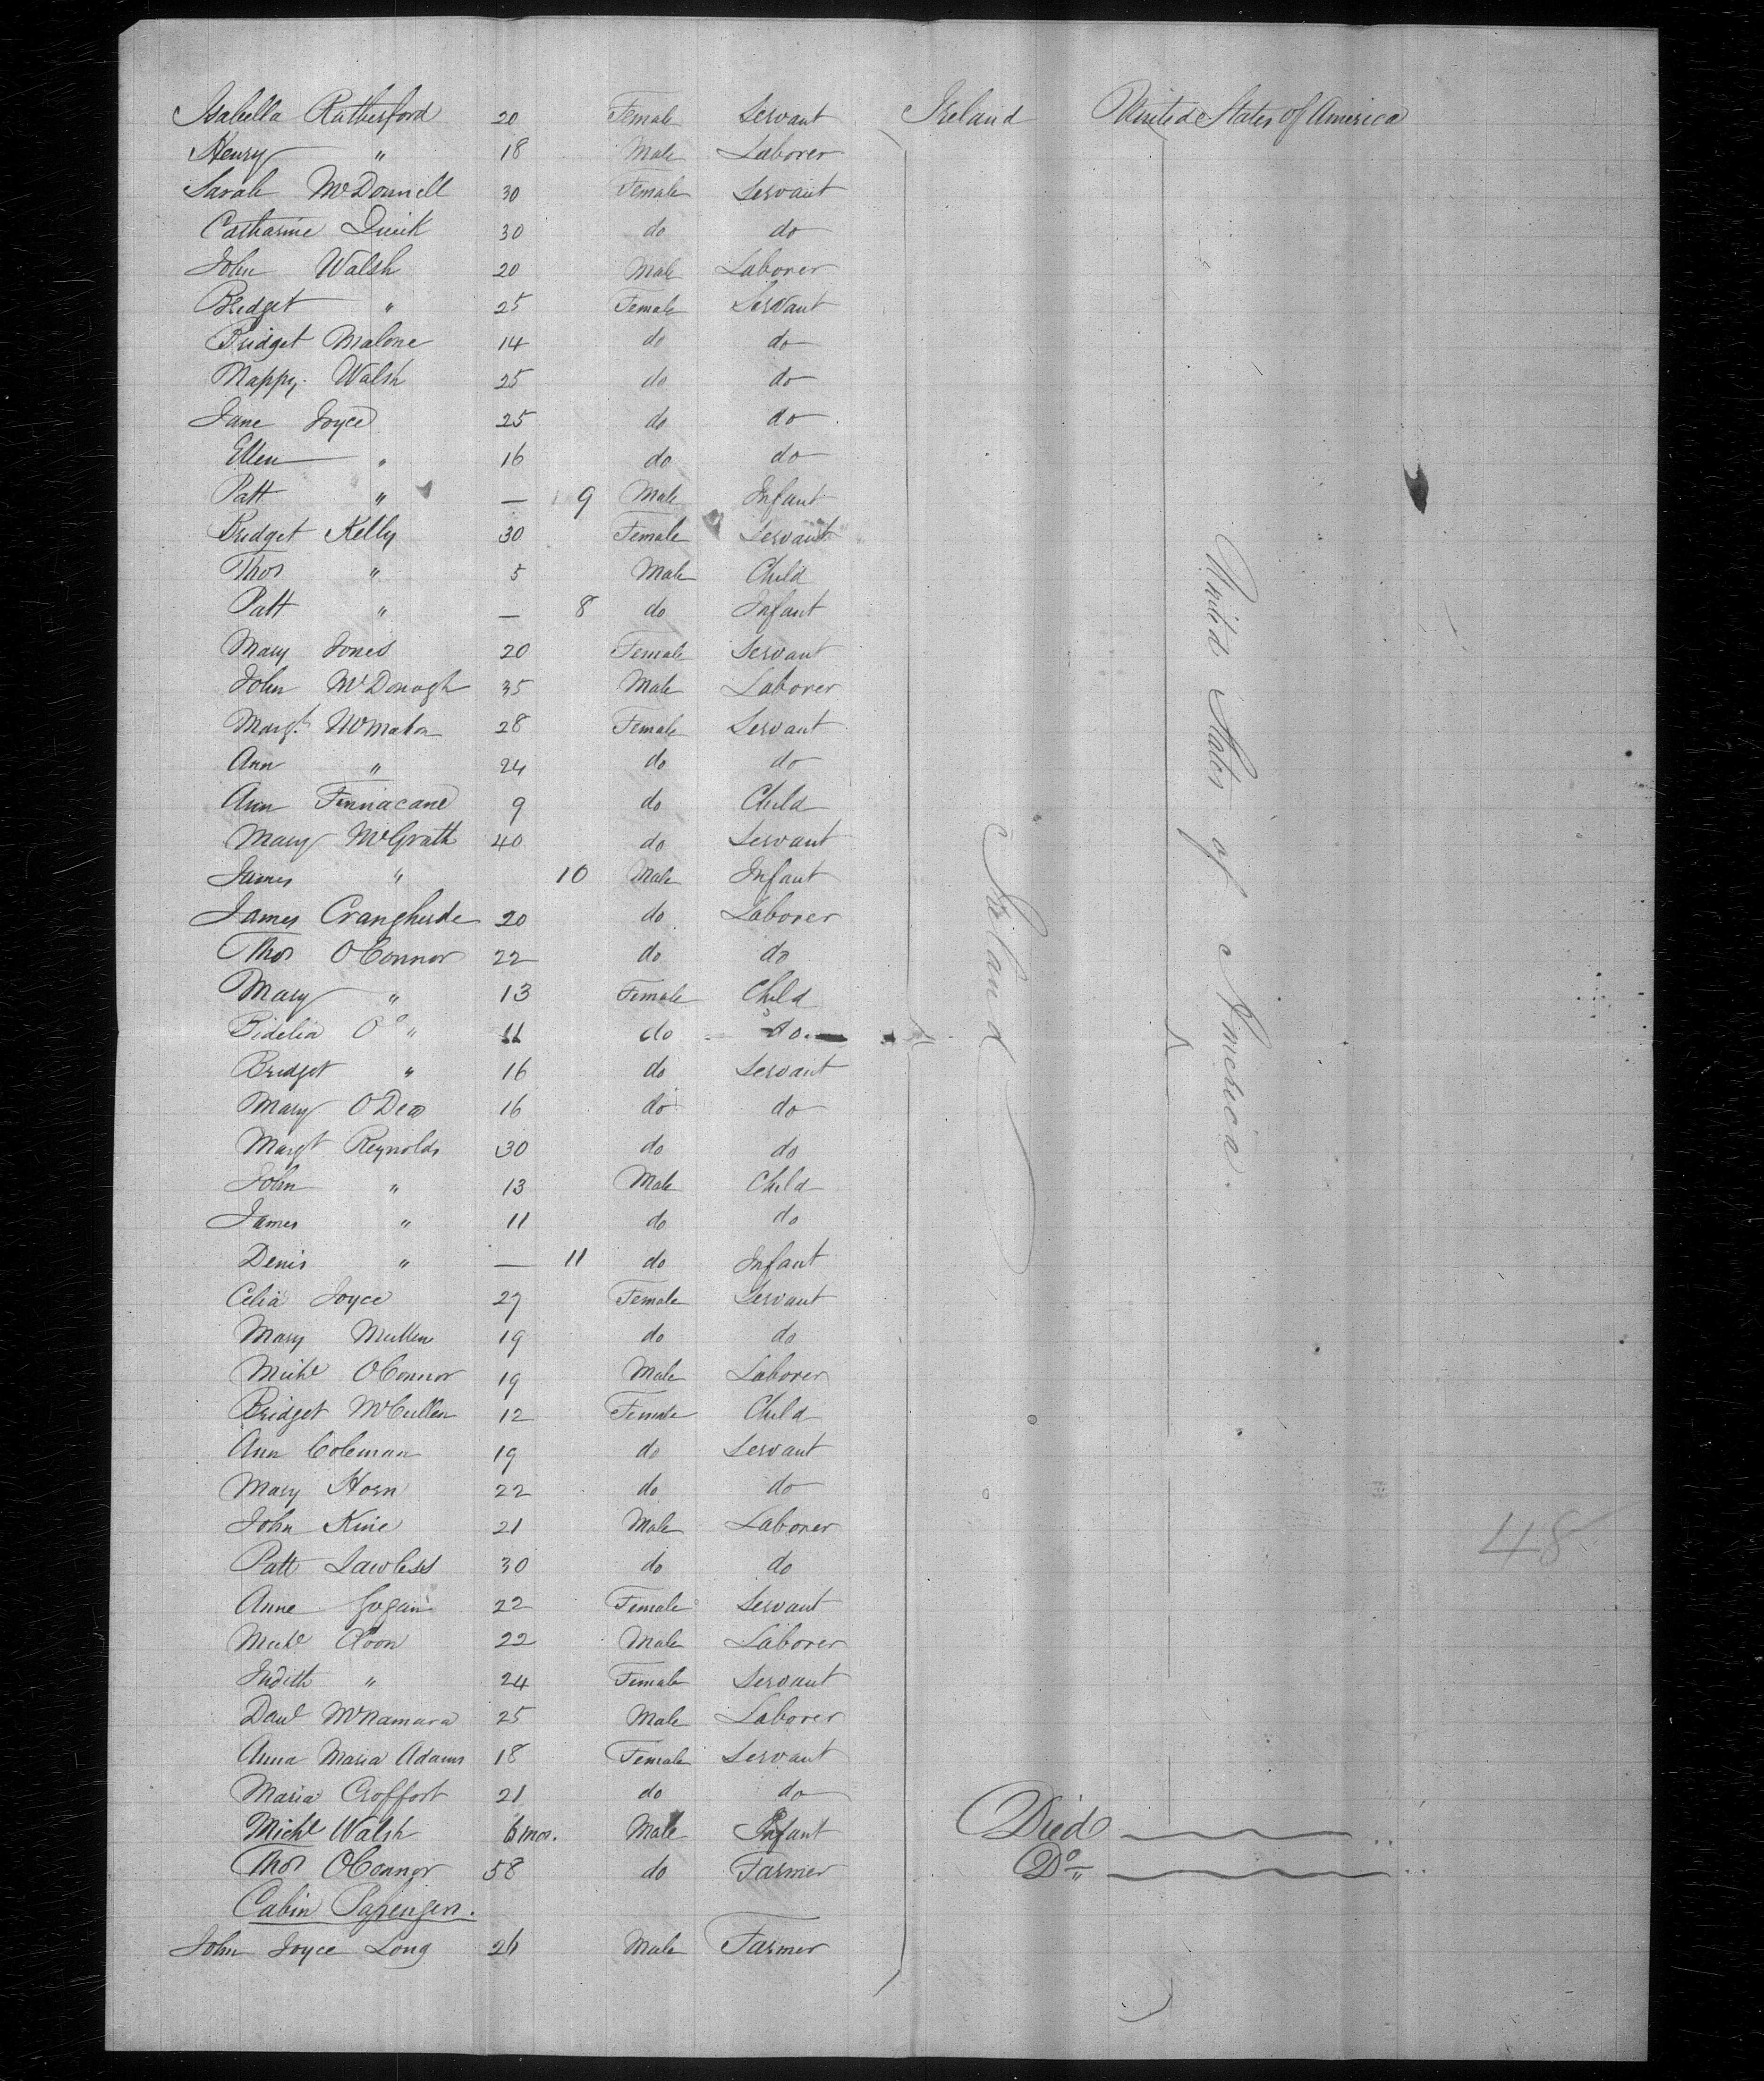 Isabella Rutherford 20 Female Servant Ireland United States of America
Henry " 18 Male Laborer
Sarah McDonnell 30 Female Servant
Catharine Quirk 30 do do
John Walsh 20 Male Laborer
Bridget " 25 Female Servant
Bridget Malone 14 do do
Nappy Walsh 25 do do
Jane Joyce 25 do do
Ellen " 16 do do
Patt " — 9 Male Infant
Bridget Kelly 30 Female Servant
Thos " 5 Male Child
Patt " — 8 do Infant
Mary Jones 20 Female Servant
John McDonogh 35 Male Laborer
Margt McMahon 28 Female Servant
Ann " 24 do do
Ann Finnacane 9 do Child
Mary McGrath 40 do Servant
James " 10 Male Infant
James 20 do Laborer
Thos OConnor 22 do do
Mary " 13 Female Child
Bidelia O " 11 do do
Bridget " 16 do Servant
Mary ODea 16 do do
Margt Reynolds 30 do do
John " 13 Male Child
James " 11 do do
Denis " — 11 do Infant
Celia Joyce 27 Female Servant
Mary Mullen 19 do do
Michl OConnor 19 Male Laborer
Bridget McCullen 12 Female Child
Ann Coleman 19 do Servant
Mary Horn 22 do do
John Kine 21 Male Laborer
Patt Lawless 30 do do
Anne Gogan 22 Female Servant
Michl Coon 22 Male Laborer
Judith " 24 Female Servant
Danl McNamara 25 Male Laborer
Anna Maria Adams 18 Female Servant
Maria Croffort 21 do do
Michl Walsh 6 mos. Male Infant Died
Thos OConnor 58 do Farmer Do "
Cabin Passengers.
John Joyce Long 26 Male Farmer
Ireland
United States of America.
48